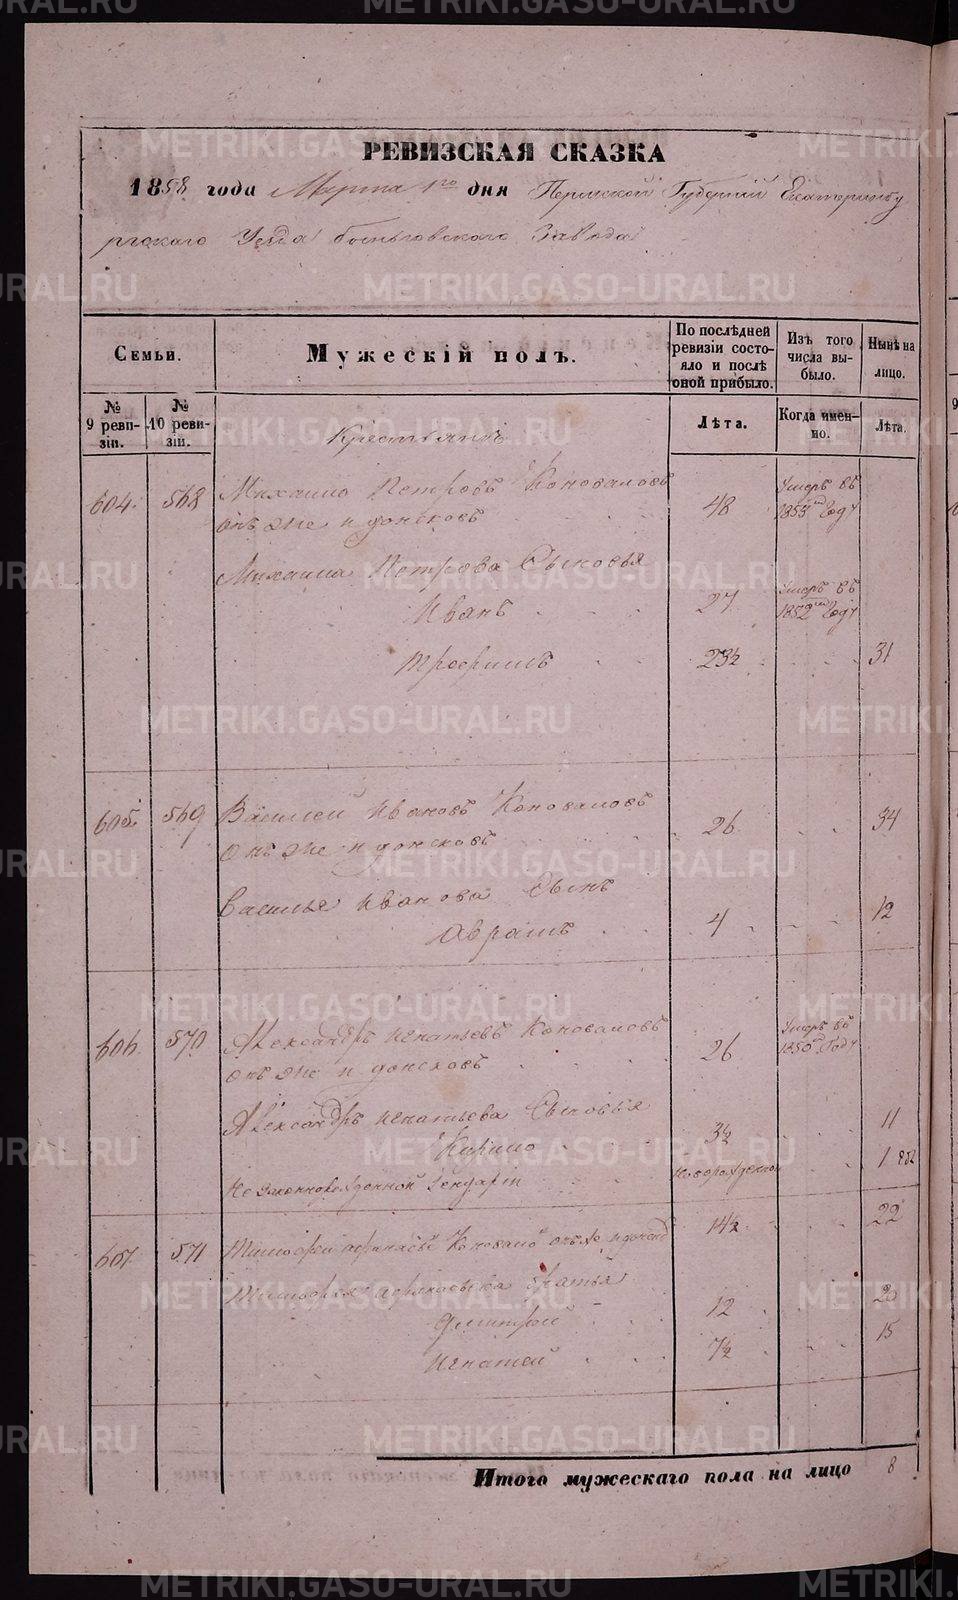 РЕВИЗСКАЯ СКАЗКА
1858 года Марта 1го дня Пермской Губернии Екатеринбу
ргскаго Уезда Быньговскаго Завода
Семьи.
№ 9 ревизіи.
№ 10 ревизіи.
Мужескій полъ.
По послѣдней ревизіи состояло и послѣ оной прибыло.
Лѣта.
Изъ того числа выбыло.
Когда именно.
Нынѣ на лицо.
Лѣта.
Крестьянъ
604. 568 Михаило Петровъ Коноваловъ 48 Умеръ въ
онъ же и донсковъ 1855мъ Году
Михаила Петрова Сыновья
Иванъ 27 Умеръ въ
1852 Году
Трофимъ 23½ 31
605. 569 Василей Ивановъ Коноваловъ 26 34
онъ же и донсковъ
Василья Иванова Сынъ
Аврамъ 4 12
606. 570 Александръ игнатьевъ Коноваловъ 26 Умеръ въ
онъ же и донсковъ 1850 Году
Александръ игнатьева Сыновья
Кирило 3½ 11
Гендарій новорожденной 1
607. 571 Тимофей Коновало онъ же и донсков 14½ 22
Тимофея афанасьева братья
дмитрей 12 20
Игнатей 7½ 15
Итого мужескаго пола на лицо 8
METRIKI.GASO-URAL.RU